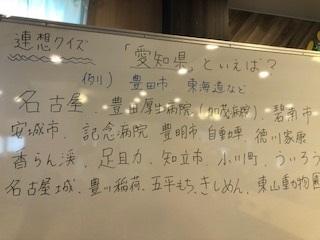 連想クイズ
「愛知県」といえば?
例) 豊田市 東海道など
名古屋、豊田厚生病院(加茂病院)、碧南市
安城市、記念病院、豊明市、自動車、徳川家康
香らん渓、足助、知立市、小川町、ういろう
名古屋城、豊川稲荷、五平もち、きしめん、東山動物園